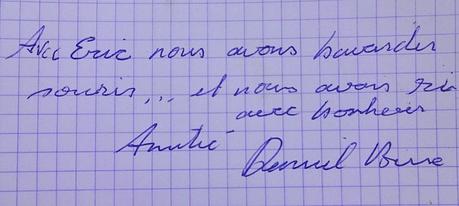 Avec Eric nous avons bavarder
souris... et nous avons ri
avec bonheur
Amitié
Daniel